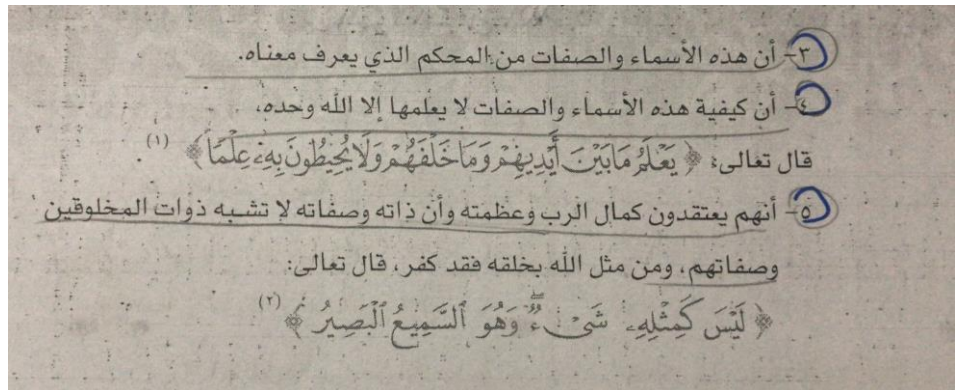 ٣- أن هذه الأسماء والصفات من المحكم الذي يعرف معناه.
٤- أن كيفية هذه الأسماء والصفات لا يعلمها إلا الله وحده،
قال تعالى: ﴿ يَعْلَمُ مَا بَيْنَ أَيْدِيهِمْ وَمَا خَلْفَهُمْ وَلَا يُحِيطُونَ بِهِۦ عِلْمًا ﴾ (١)
٥- أنهم يعتقدون كمال الرب وعظمته وأن ذاته وصفاته لا تشبه ذوات المخلوقين
وصفاتهم، ومن مثل الله بخلقه فقد كفر، قال تعالى:
﴿ لَيْسَ كَمِثْلِهِۦ شَىْءٌ ۖ وَهُوَ ٱلسَّمِيعُ ٱلْبَصِيرُ ﴾ (٢)